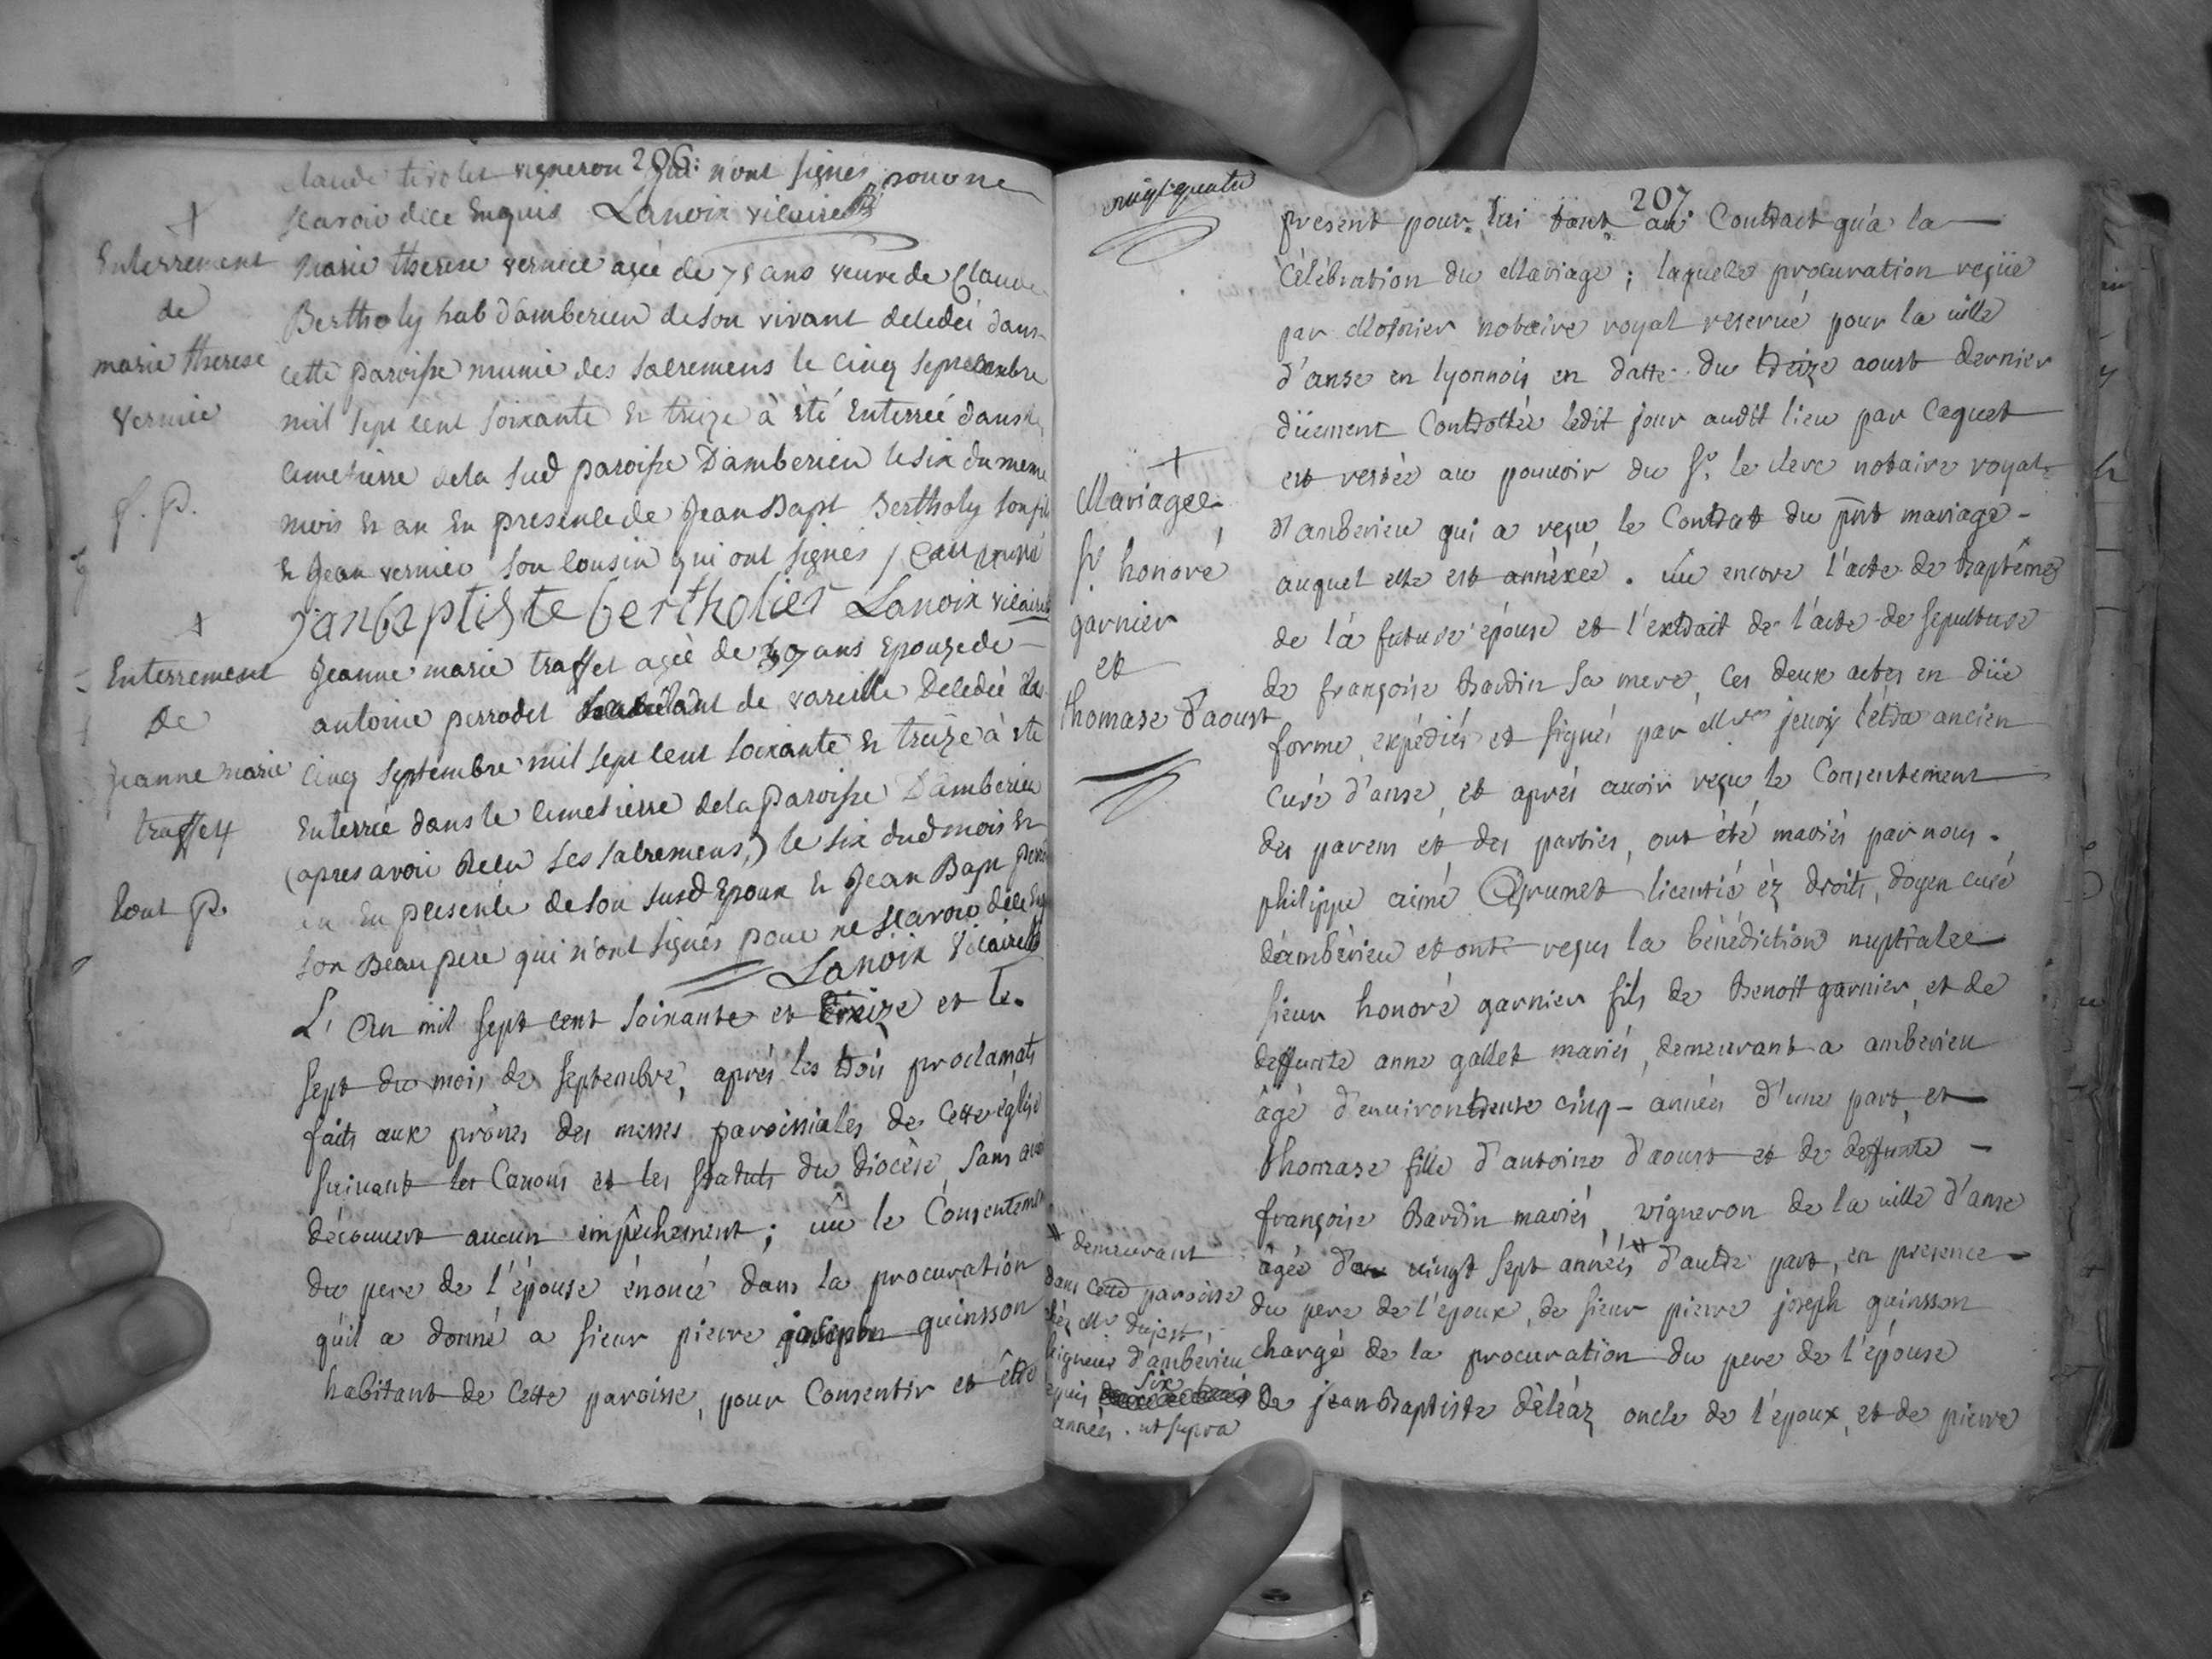 206.
claude tirolet vigneron qui n'ont signés pour ne
scavoir de ce Enquis Lanoix vicaire
+
Enterrement
de
marie therese
vernie
marie therese vernie agée de 75 ans veuve de Claude
Bertholy hab d'amberieu de son vivant decedée dans
cette paroisse munie des sacremens le cinq septembre
mil sept cent soixante & treize à été Enterrée dans le
cimetierre de la sud paroisse D'amberieu le six du meme
mois & an En presence de Jean Bapt Bertholy son fils
& Jean vernier son cousin qui ont signés
janbaptiste bertholier Lanoix vicaire
+
Enterrement
De
jeanne marie
traffet
Jeanne marie traffet agée de ans Epouze de
antoine perrodet habitant de vareille Decedée le
cinq septembre mil sept cent soixante & treize à été
Enterrée dans le cimetierre de la Paroisse D'amberieu
(apres avoir Recu ses sacremens,) le six dud mois &
an En presence de son susd Epoux & Jean Bapt
son Beau pere qui n'ont signés pour ne scavoir de ce Enquis
Lanoix vicaire
L'an mil sept cent soixante et treize et le
sept du mois de septembre, aprés les trois proclamats
faits aux prônes des messes paroissiales de cette église
suivant les Canons et les statuts du diocèse, sans avoir
découvert aucun empêchement; vû le Consentement
du pere de l'épouse énoncé dans la procuration
qu'il a donné a sieur pierre joseph guinsson
habitant de cette paroisse, pour Consentir et être
207
vingt quatre
présent pour lui tant au Contract qu'à la
Célébration du Mariage; laquelle procuration reçüe
par Mosnier notaire royal reservé pour la ville
d'anse en lyonnois en datte du treize aoust dernier
düement Controllée ledit jour audit lieu par Caquet
est restée au pouvoir du Sr. le clerc notaire royal
d'amberieu qui a reçu le Contrat du pnt mariage
auquel elle est annéxée. vû encore l'acte de baptême
de la future épouse et l'extrait de l'acte de sepulture
de françoise Bardin sa mere, ces deux actes en düe
forme, expédiés et signés par Mre ancien
curé d'anse, et aprés avoir reçu le Consentement
des parens et des parties, ont été mariés par nous
philippe aimé Grumet licentié èz droits, doyen curé
d'ambérieu et ont reçus la bénédiction nuptiale
+
Mariage
Sr honoré
garnier
et
thomase d'aoust
sieur honoré garnier fils de Benoît garnier, et de
deffunte anne gallet mariés, demeurant a ambérieu
âgé d'environ trente cinq années d'une part, et
thomase fille d'antoine d'aoust et de deffunte
françoise Bardin mariés, vigneron de la ville d'anse
âgée de vingt sept années # d'autre part, en presence
du pere de l'époux, de sieur pierre joseph guinsson
chargé de la procuration du pere de l'épouse
de jean Baptiste déléaz oncle de l'époux, et de pierre
# demeurant
dans cette paroisse
chéz Mr. dujast,
seigneur d'ambérieu
depuis six
années. ut supra